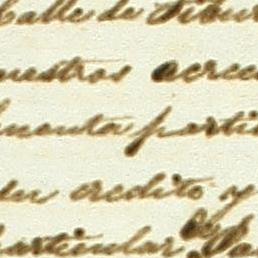 Calle de Tibur
nuestros acree
cuenta parti
su credito y
particular.